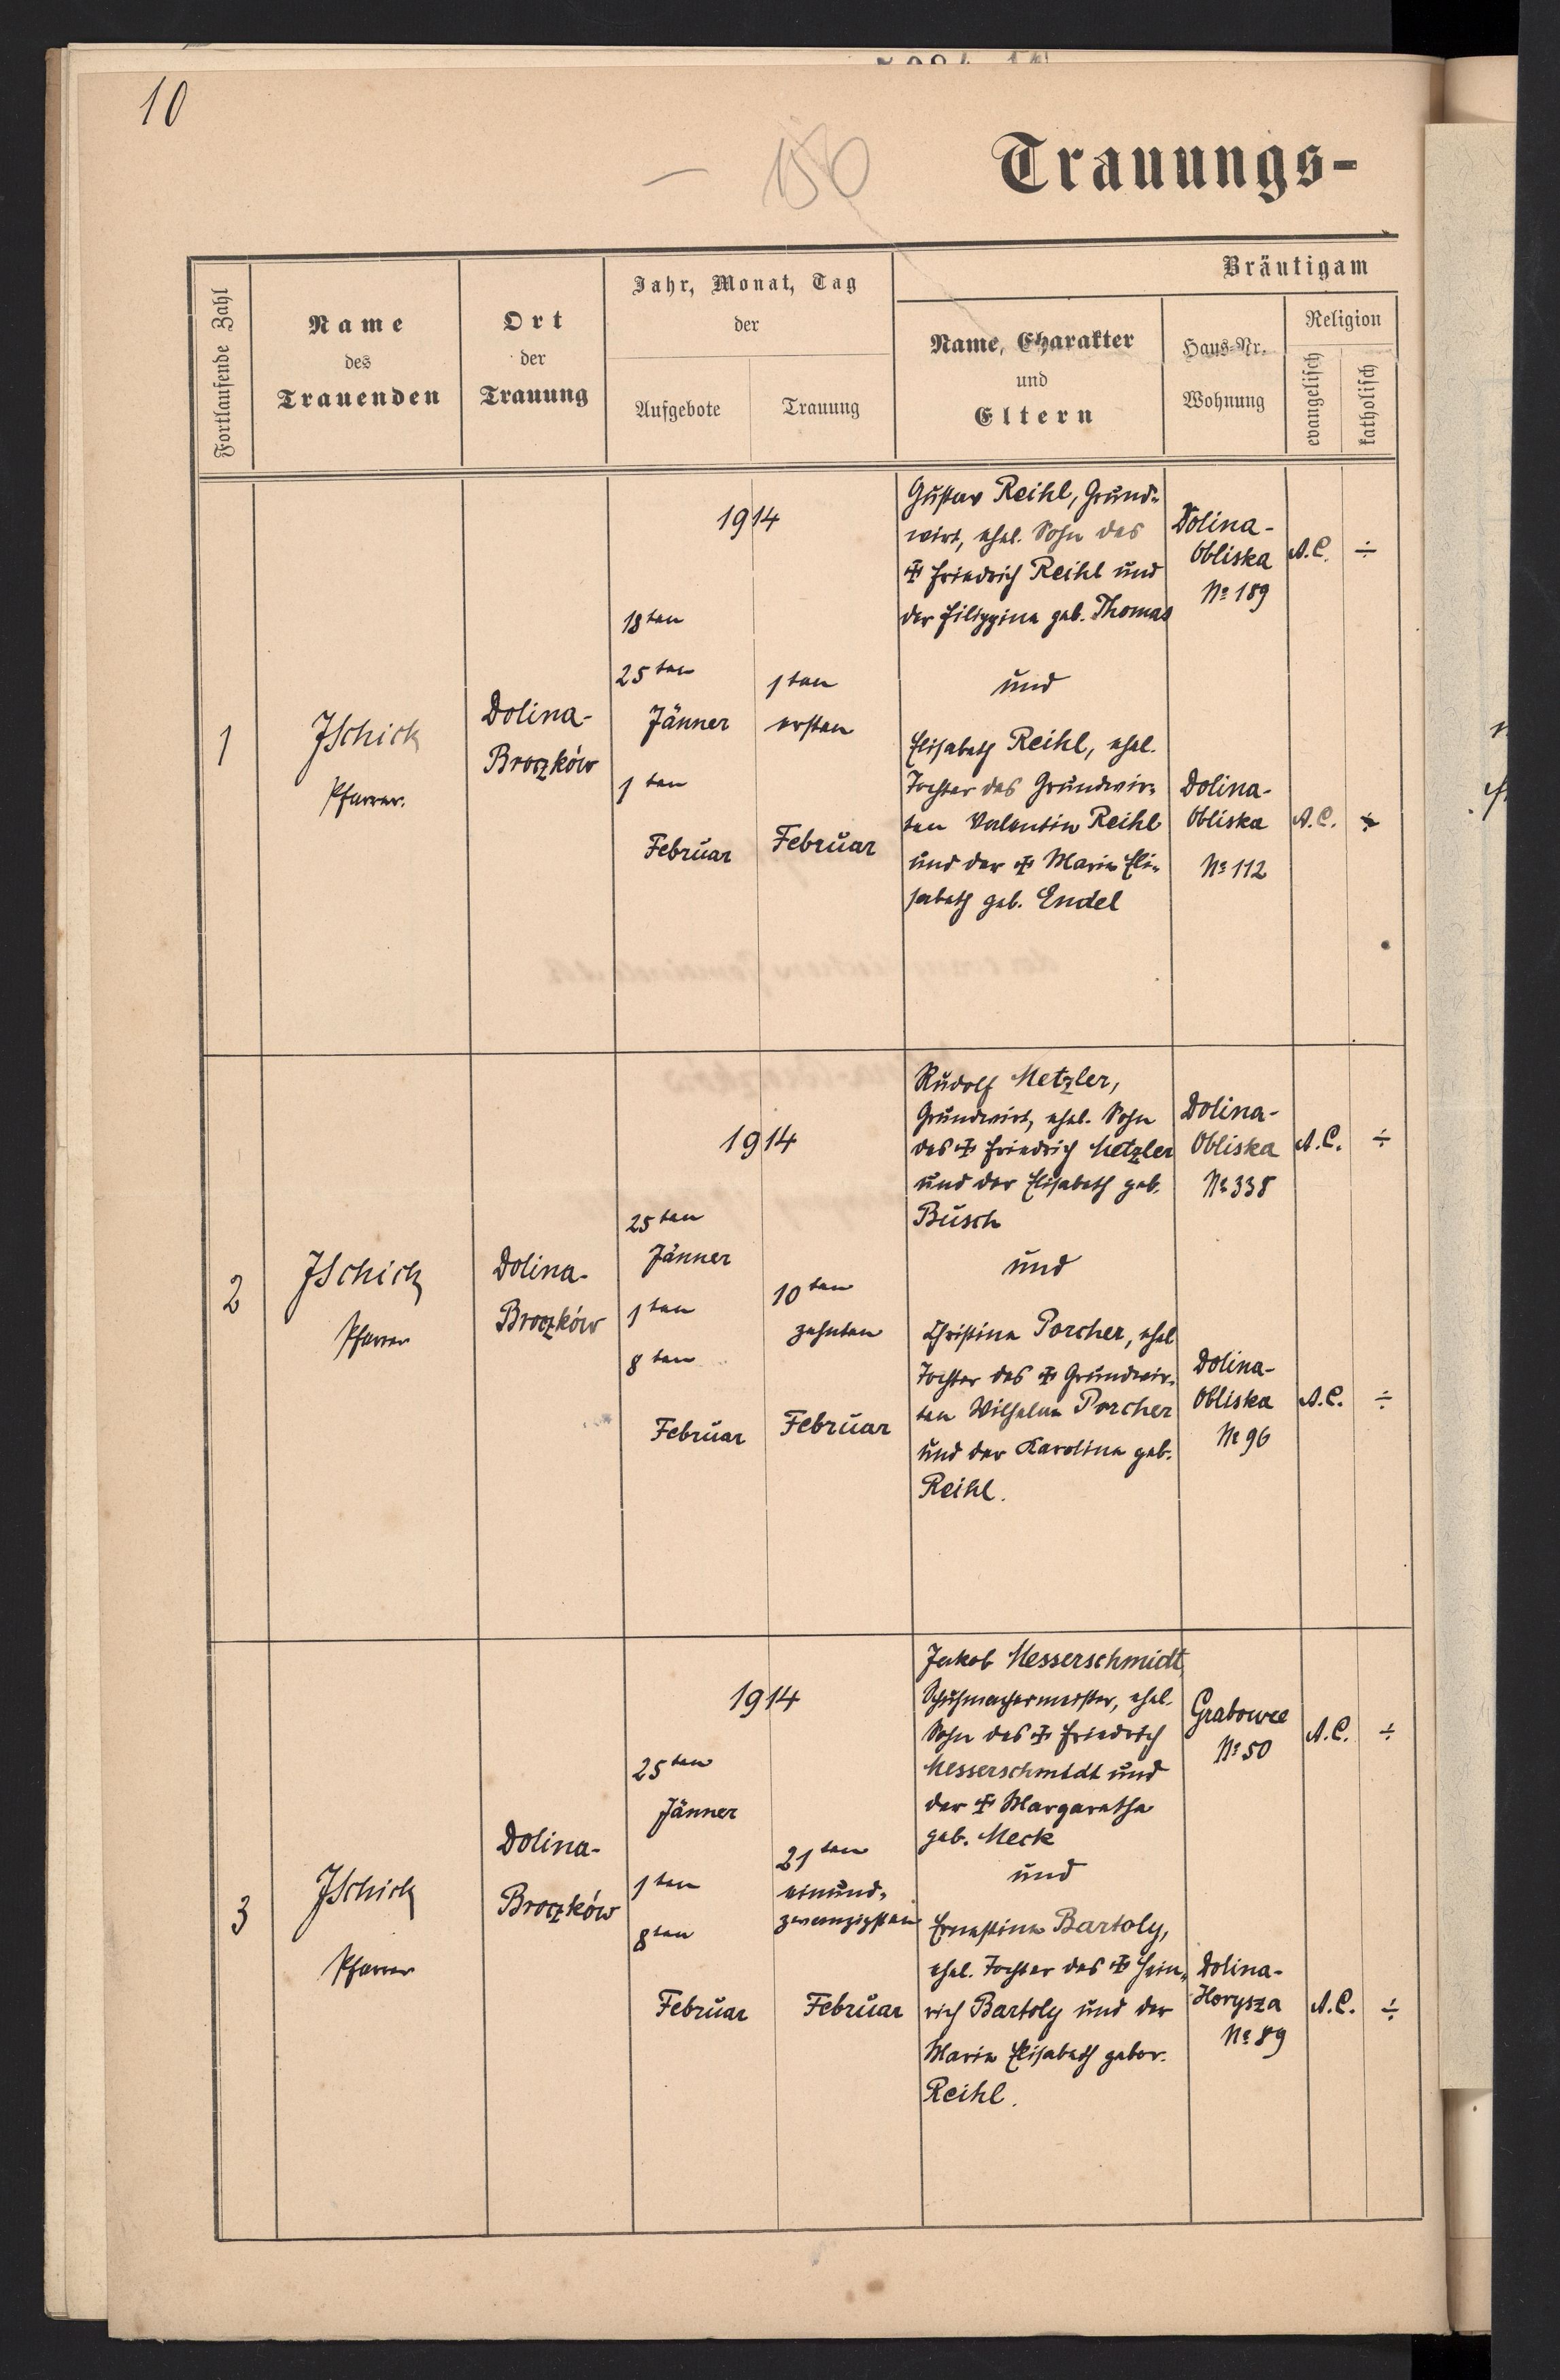 10
150
Trauungs-
Fortlaufende Zahl
Name
des
Trauenden
Ort
der
Trauung
Jahr, Monat, Tag
der
Aufgebote
Trauung
Bräutigam
Name, Charakter
und
Eltern
Haus-Nr.
Wohnung
Religion
evangelisch
katholisch
1
JSchick
Pfarrer.
Dolina-
Broczków
1914
18ten
25ten
Jänner
1ten
Februar
1ten
ersten
Februar
Gustav Reihl, Grund-
wirt, ehel. Sohn des
✠ Friedrich Reihl und
der Filippine geb. Thomas
und
Elisabeth Reihl, ehel.
Tochter des Grundwir-
ten Valentin Reihl
und der ✠ Marie Eli-
sabeth geb. Endel
Dolina-
Obliska
No 189
A.C.
÷
Dolina-
Obliska
No 112
A.C.
÷
2
JSchick
Pfarrer
Dolina-
Broczków
1914
25ten
Jänner
1ten
8ten
Februar
10ten
zehnten
Februar
Rudolf Metzler,
Grundwirt, ehel. Sohn
des ✠ Friedrich Metzler
und der Elisabeth geb.
Busch
und
Christine Porcher, ehel
Tochter des ✠ Grundwir-
ten Wilhelm Porcher
und der Karoline geb.
Reihl.
Dolina-
Obliska
No 338
A.C.
÷
Dolina-
Obliska
No 96
A.C.
÷
3
JSchick
Pfarrer
Dolina-
Broczków
1914
25ten
Jänner
1ten
8ten
Februar
21ten
einund-
zwanzigsten
Februar
Jakob Messerschmidt
Schuhmachermeister, ehel.
Sohn des ✠ Friedrich
Messerschmidt und
der ✠ Margarethe
geb. Meck
und
Ernestine Bartoly,
ehel. Tochter des ✠ Hein-
rich Bartoly und der
Marie Elisabeth gebor.
Reihl.
Grabowce
No 50
A.C.
÷
Dolina-
Horysza
No 89
A.C.
÷